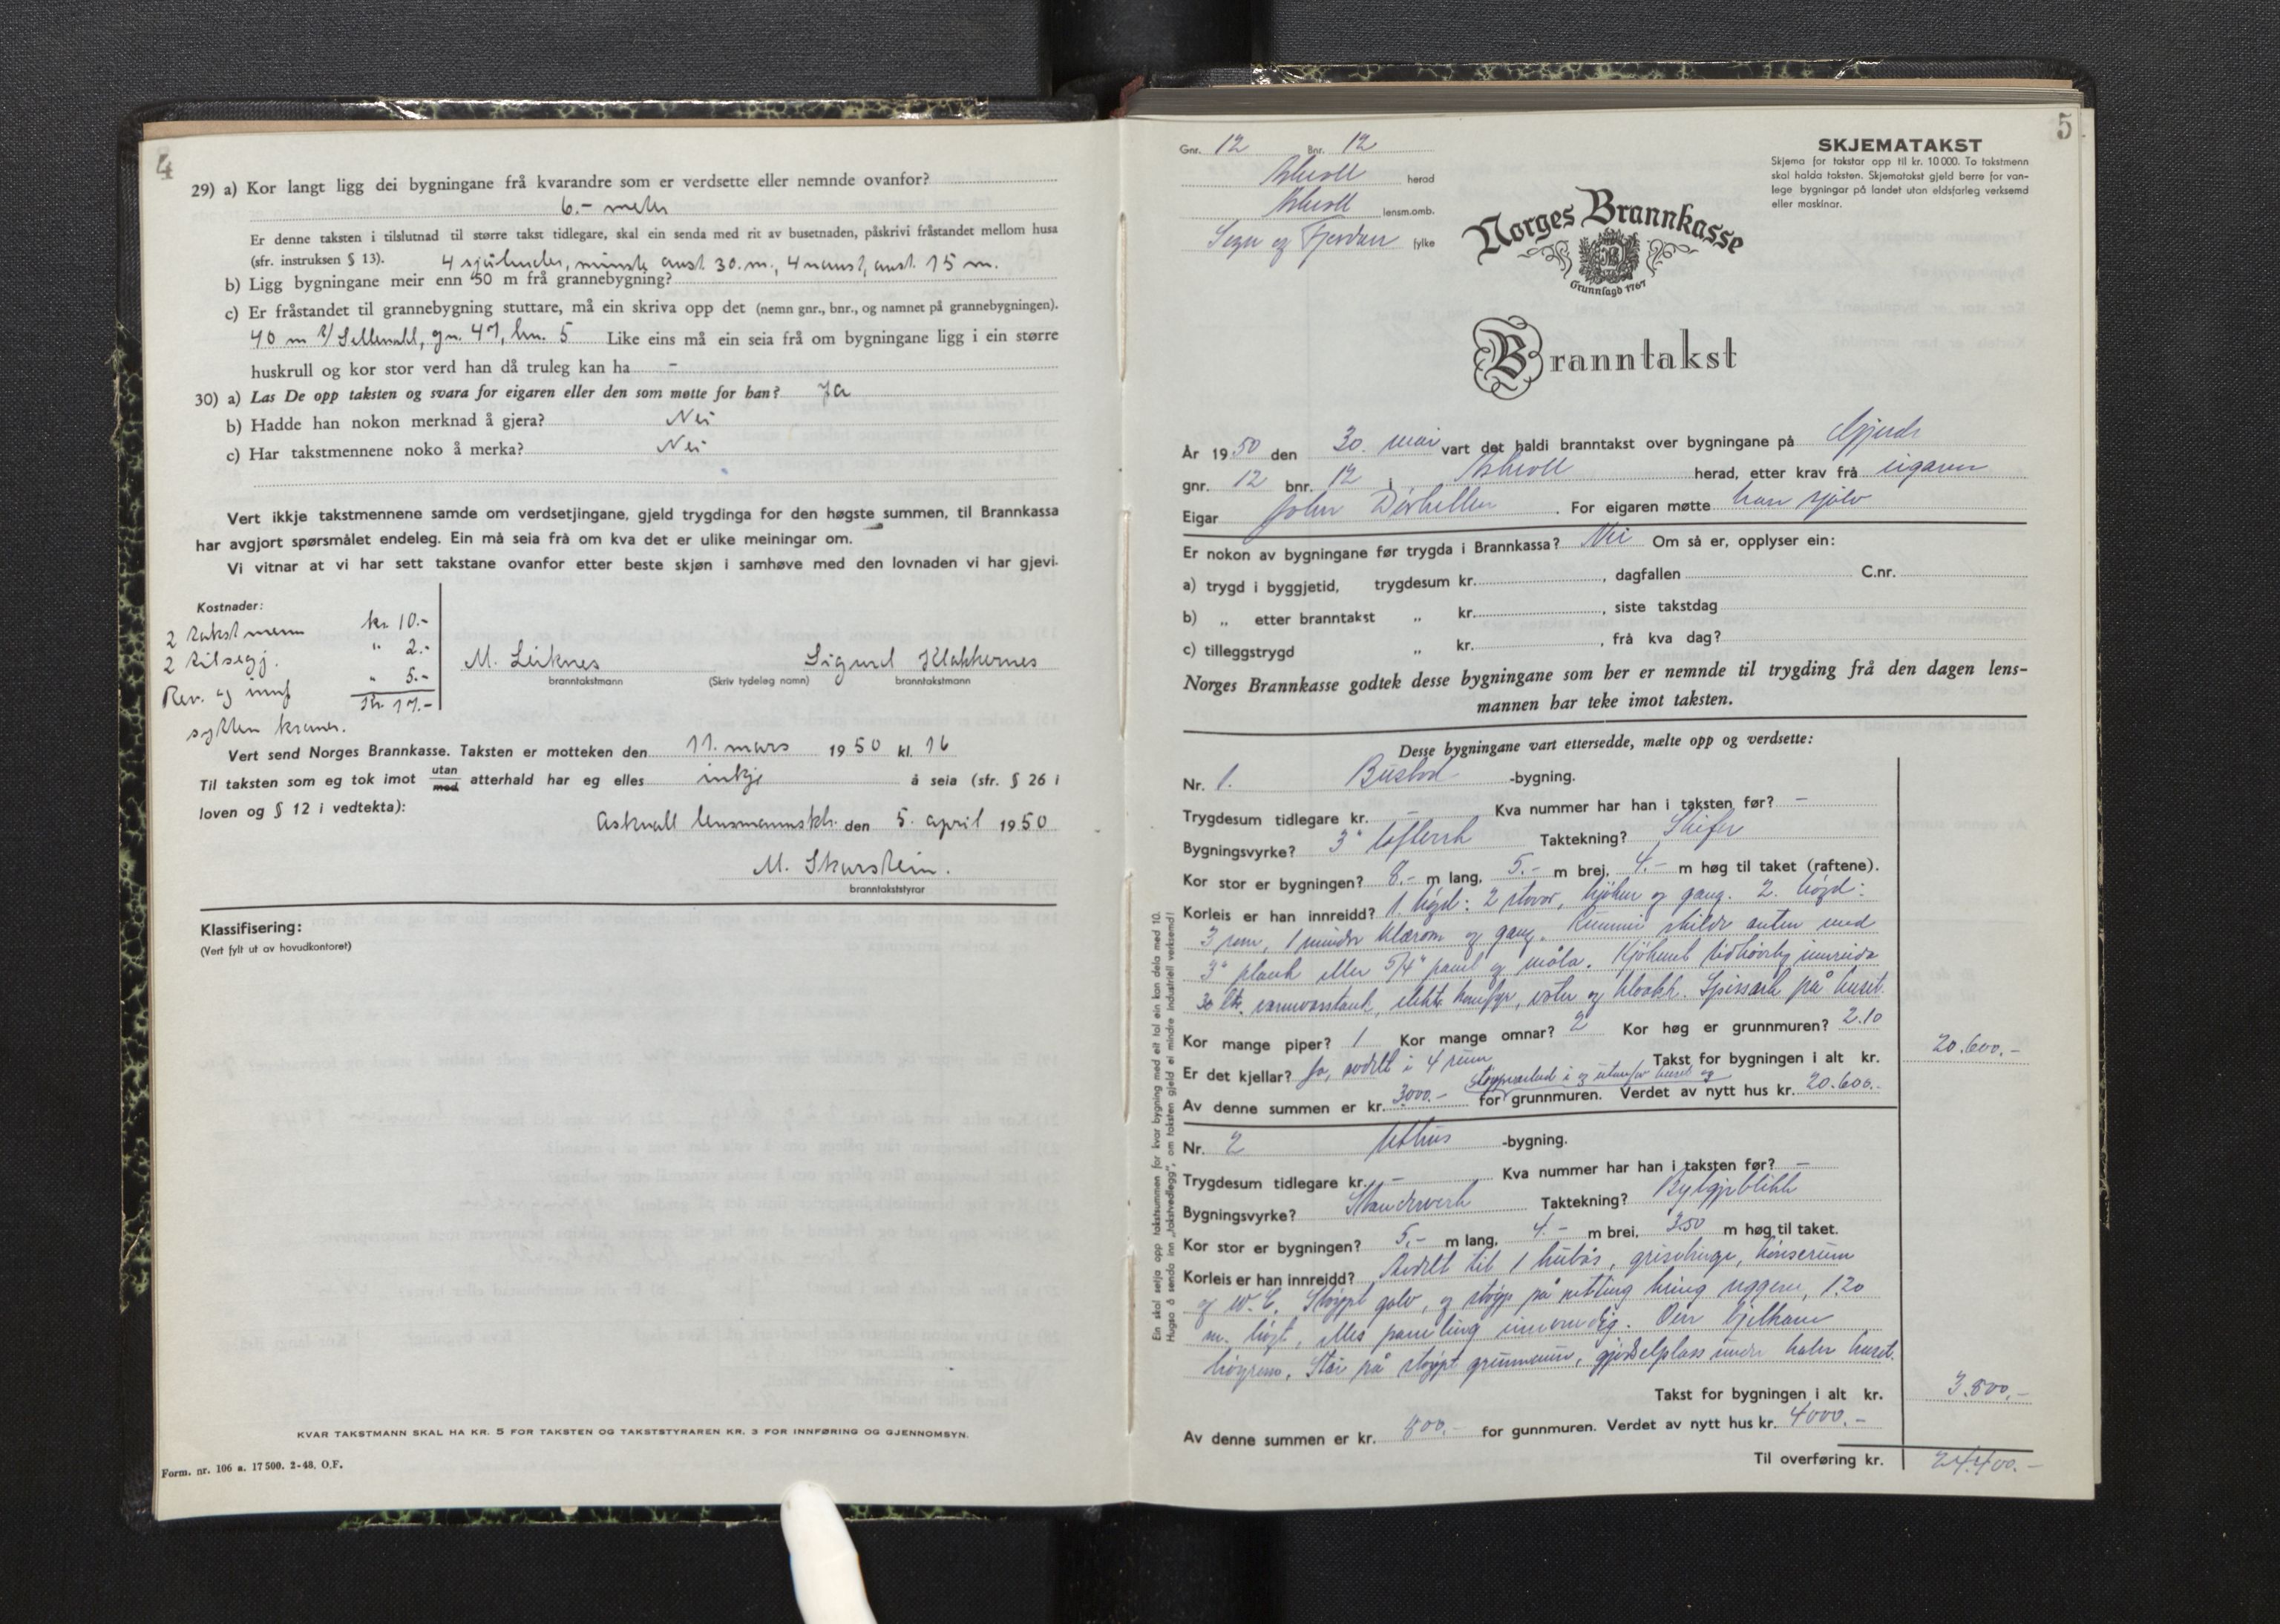 4
29) a) Kor langt ligg dei bygningane frå kvarandre som er verdsette eller nemnde ovanfor?
6.- meter
Er denne taksten i tilslutnad til større takst tidlegare, skal ein senda med rit av busetnaden, påskrivi fråstandet mellom husa
(sfr. instruksen § 13). 4 sjøbuder, minste avst. 30. m., 4 naust, avst. 15 m.
b) Ligg bygningane meir enn 50 m frå grannebygning?
c) Er fråstandet til grannebygning stuttare, må ein skriva opp det (nemn gnr., bnr., og namnet på grannebygningen).
40 m gn. 47, bn. 5 Like eins må ein seia frå om bygningane ligg i ein større
huskrull og kor stor verd han då truleg kan ha -
30) a) Las De opp taksten og svara for eigaren eller den som møtte for han? Ja
b) Hadde han nokon merknad å gjera? Nei
c) Har takstmennene noko å merka? Nei
Vert ikkje takstmennene samde om verdsetjingane, gjeld trygdinga for den høgste summen, til Brannkassa
har avgjort spørsmålet endeleg. Ein må seia frå om kva det er ulike meiningar om.
Vi vitnar at vi har sett takstane ovanfor etter beste skjøn i samhøve med den lovnaden vi har gjevi.
Kostnader:
2 takstmenn kr. 10.-
2 tilsegj. " 2.-
Rev. og innf " 5.-
Kr. 17.-
sytten kroner.
M. Leiknes Sigurd Klakkernes
branntakstmann (Skriv tydeleg namn) branntakstmann
Vert send Norges Brannkasse. Taksten er motteken den 11. mars 1950 kl. 16
Til taksten som eg tok imot utan med atterhald har eg elles inkje å seia (sfr. § 26 i
loven og § 12 i vedtekta):
Askvoll lensmannsktr. den 5. april 1950
M. Skarstein.
branntakststyrar
Klassifisering:
(Vert fylt ut av hovudkontoret)
KVAR TAKSTMANN SKAL HA KR. 5 FOR TAKSTEN OG TAKSTSTYRAREN KR. 3 FOR INNFØRING OG GJENNOMSYN.
Form. nr. 106 a. 17 500. 2-48. O.F.
5
Gnr. 12 Bnr. 12
Askvoll herad
Askvoll lensm.omb.
Sogn og Fjordane fylke
SKJEMATAKST
Skjema for takstar opp til kr. 10 000. To takstmenn
skal halda taksten. Skjematakst gjeld berre for van-
lege bygningar på landet utan eldsfarleg verksemd
eller maskinar.
Norges Brannkasse
Grunnlagd 1767
Branntakst
År 1950 den 30. mai vart det haldi branntakst over bygningane på
gnr. 12 bnr. 12 i Askvoll herad, etter krav frå eigaren
Eigar John . For eigaren møtte han sjølv
Er nokon av bygningane før trygda i Brannkassa? Nei Om så er, opplyser ein:
a) trygd i byggjetid, trygdesum kr. , dagfallen C.nr.
b) „ etter branntakst „ kr. , siste takstdag
c) tilleggstrygd „ kr. , frå kva dag?
Norges Brannkasse godtek desse bygningane som her er nemnde til trygding frå den dagen lens-
mannen har teke imot taksten.
Desse bygningane vart ettersedde, mælte opp og verdsette:
Nr. 1. Bustad -bygning.
Trygdesum tidlegare kr. - Kva nummer har han i taksten før? -
Bygningsvyrke? 3" Taktekning? Skifer
Kor stor er bygningen? 8.- m lang, 5.- m brej, 4.- m høg til taket (raftene).
Korleis er han innreidd? 1. høgd: 2 stover, kjøken og gang. 2. høgd:
3 rom, 1 mindre klærom og gang. Rummi skilde anten med
3" plank eller 5/4" panel og måla. Kjøkenet tidhøveleg innreida
30 ltr. varmvasstank, elektr. komfyr, vatn og kloakk. på huset.
Kor mange piper? 1 Kor mange omnar? 2 Kor høg er grunnmuren? 2.10
Er det kjellar? Ja, avdelt i 4 rum Takst for bygningen i alt kr. 20.600.-
i og utanfor huset og
Av denne summen er kr. 3000.- for grunnmuren. Verdet av nytt hus kr. 20.600.-
Nr. 2 Uthus -bygning.
Trygdesum tidlegare kr. - Kva nummer har han i taksten før? -
Bygningsvyrke? Standerverk Taktekning? Bylgjeblikk
Kor stor er bygningen? 5.- m lang, 4.- m brei, 3.50 m høg til taket.
Korleis er han innreidd? Avdelt til 1 kubås, grisebinge, hønserum
og W.C. Støypt golv, og støyp på netting kring veggene, 1.20
m. høgt, elles paneling innvendig. Over bjelkane
høyrom. Står på støypt grunnmur, gjødselplass under halve huset.
Takst for bygningen i alt kr. 3.800.-
Av denne summen er kr. 800.- for gunnmuren. Verdet av nytt hus kr. 4000.-
Til overføring kr. 24.400.-
Ein skal setja opp takstsummen for kvar bygning med eit tal ein kan dela med 10.
Hugsa å senda inn „takstvedlegg", om taksten gjeld ei mindre industriell verksemd!